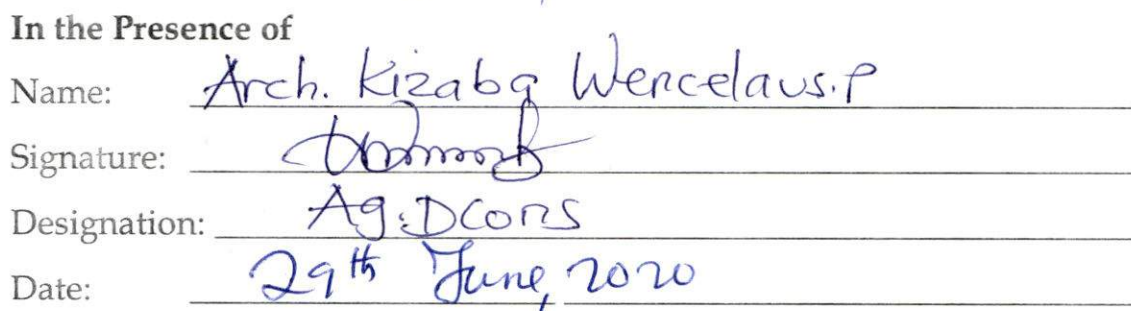 In the Presence of
Name: Arch. Kizaba Wencelaus.P
Signature:
Designation: Ag.DCONS
Date: 29th June, 2020